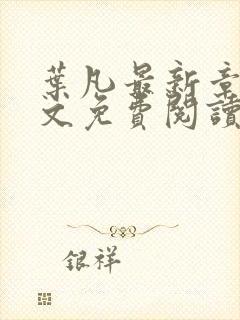 葉凡最新章
文免費閱讀
銀祥